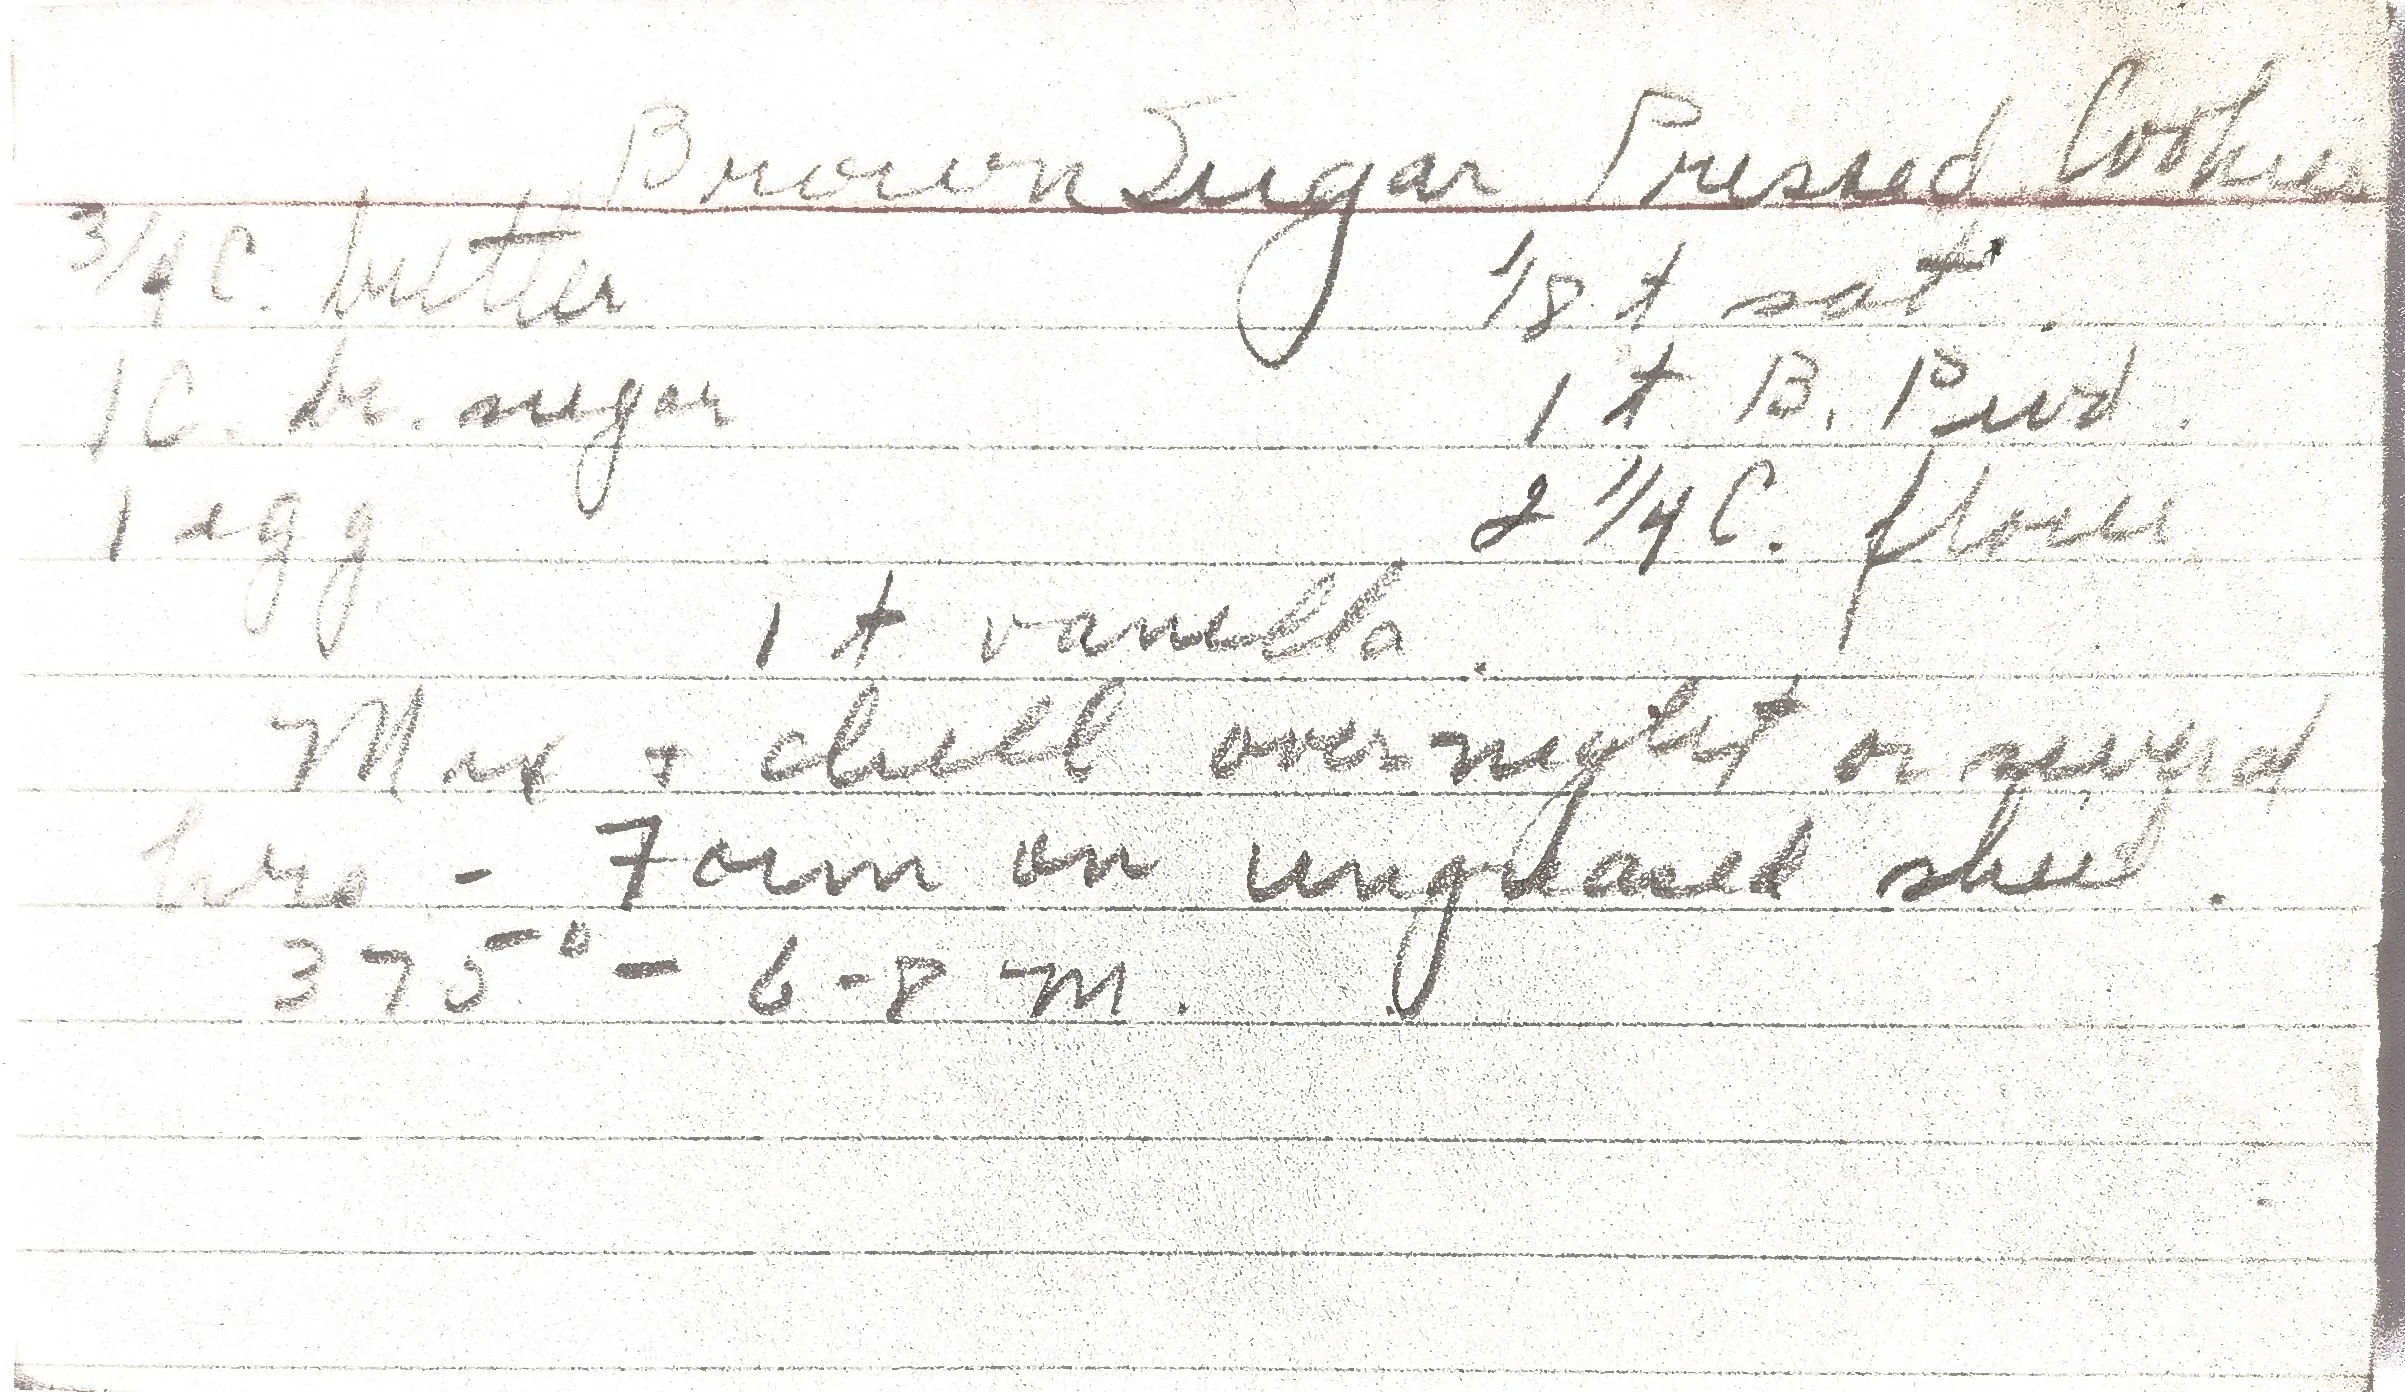 Brown Sugar Pressed Cookies
3/4 C. butter 1/8 t salt.
1 C. br. sugar 1 t B. Pwd.
1 egg 2 1/4 C. flour
1 t vanilla.
Mix + chill overnight or
hrs - Form on ungreased sheet.
375° - 6-8 m.